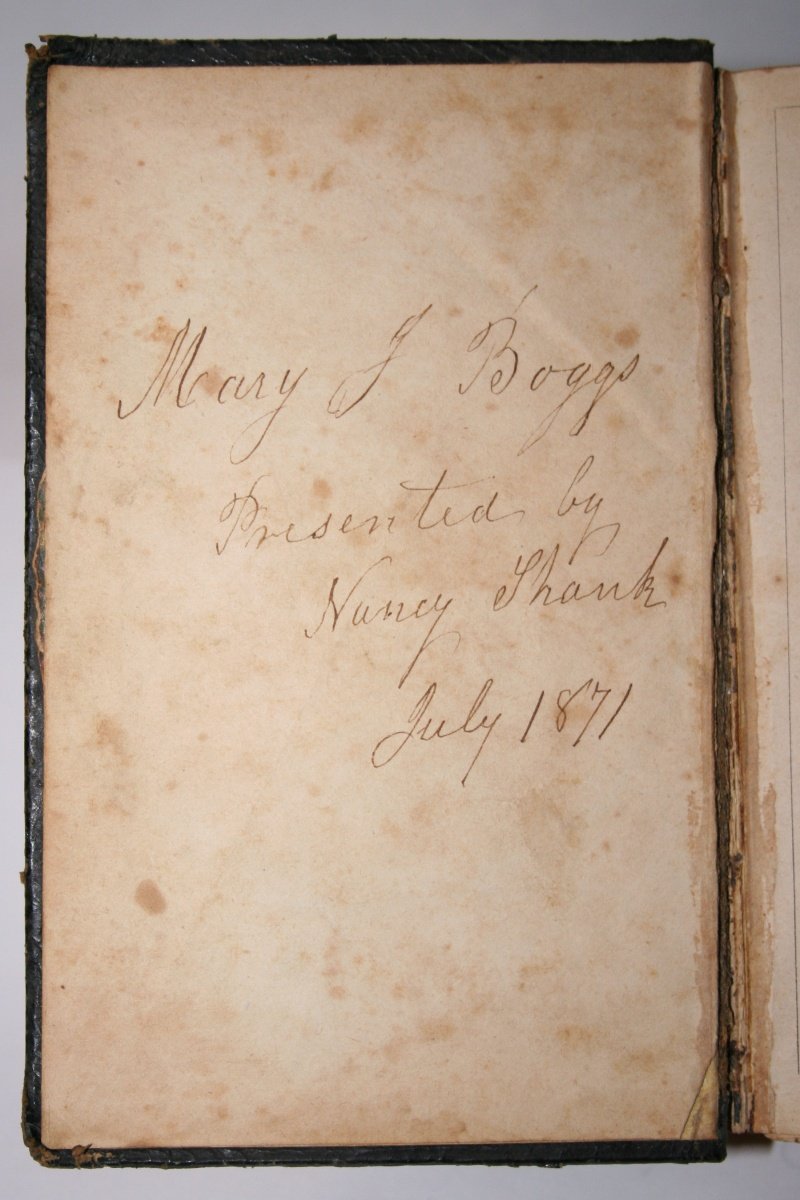 Mary J Boggs
Presented by
Nancy Shank
July 1871